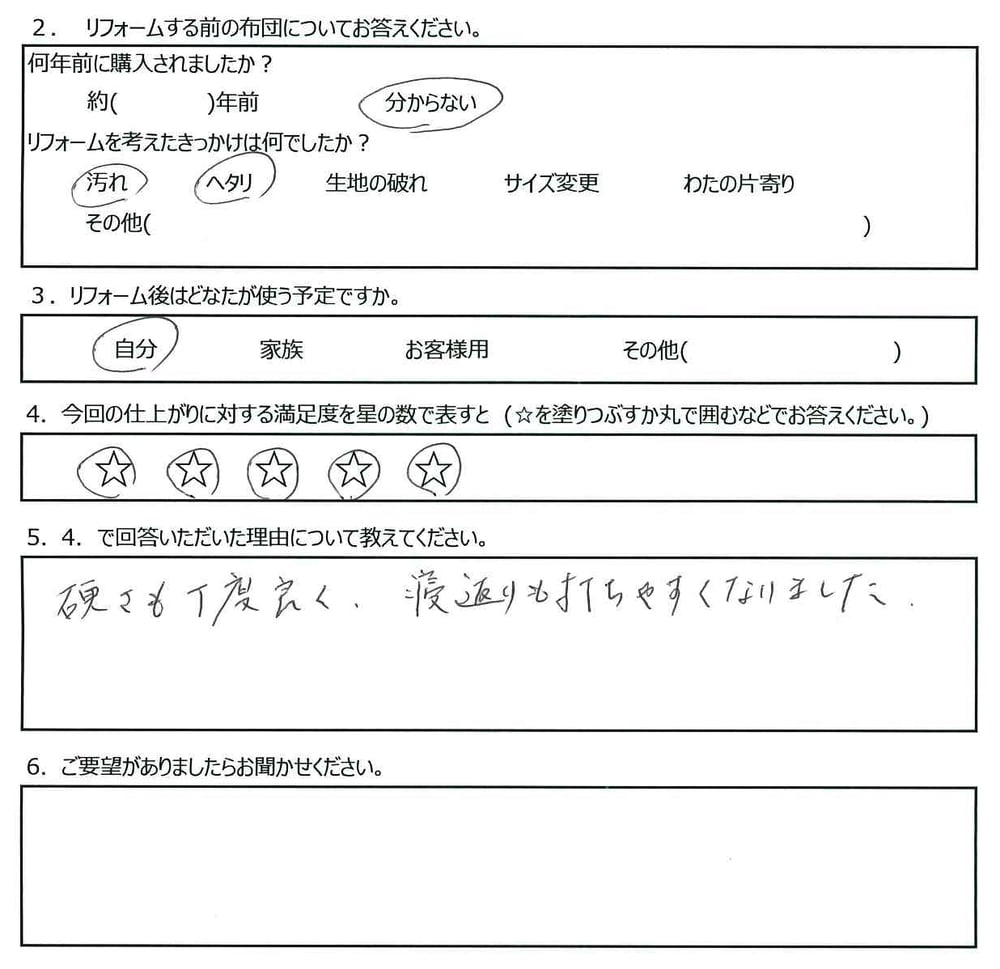 2． リフォームする前の布団についてお答えください。
何年前に購入されましたか？
約( )年前 分からない
リフォームを考えたきっかけは何でしたか？
汚れ ヘタリ 生地の破れ サイズ変更 わたの片寄り
その他( )
3．リフォーム後はどなたが使う予定ですか。
自分 家族 お客様用 その他( )
4．今回の仕上がりに対する満足度を星の数で表すと（☆を塗りつぶすか丸で囲むなどでお答えください。）
☆ ☆ ☆ ☆ ☆
5．4．で回答いただいた理由について教えてください。
硬さも丁度良く、寝返りも打ちやすくなりました.
6．ご要望がありましたらお聞かせください。